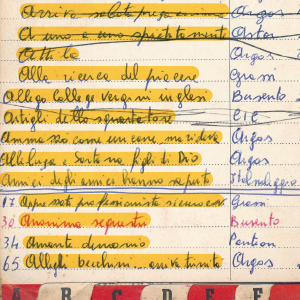 Arriva sabata prega e muore Argos
A uno a uno spietatamente Astor
Attila Argos
Alla ricerca del piacere Gram
Allegre college vergini inglesi Busento
Artigli dello squartatore CIC
Ammazzo come un cane ma rideva Argos
Alleluja e Sartana figli di Dio Argos
Amici degli amici hanno saputo Italnoleggio
17 Appss sotto professionista sicuro Gram
30 Anonima sequestri Busento
34 Amante demonio
65 Alleghi becchini... arriva trinità Argos
A B C D E